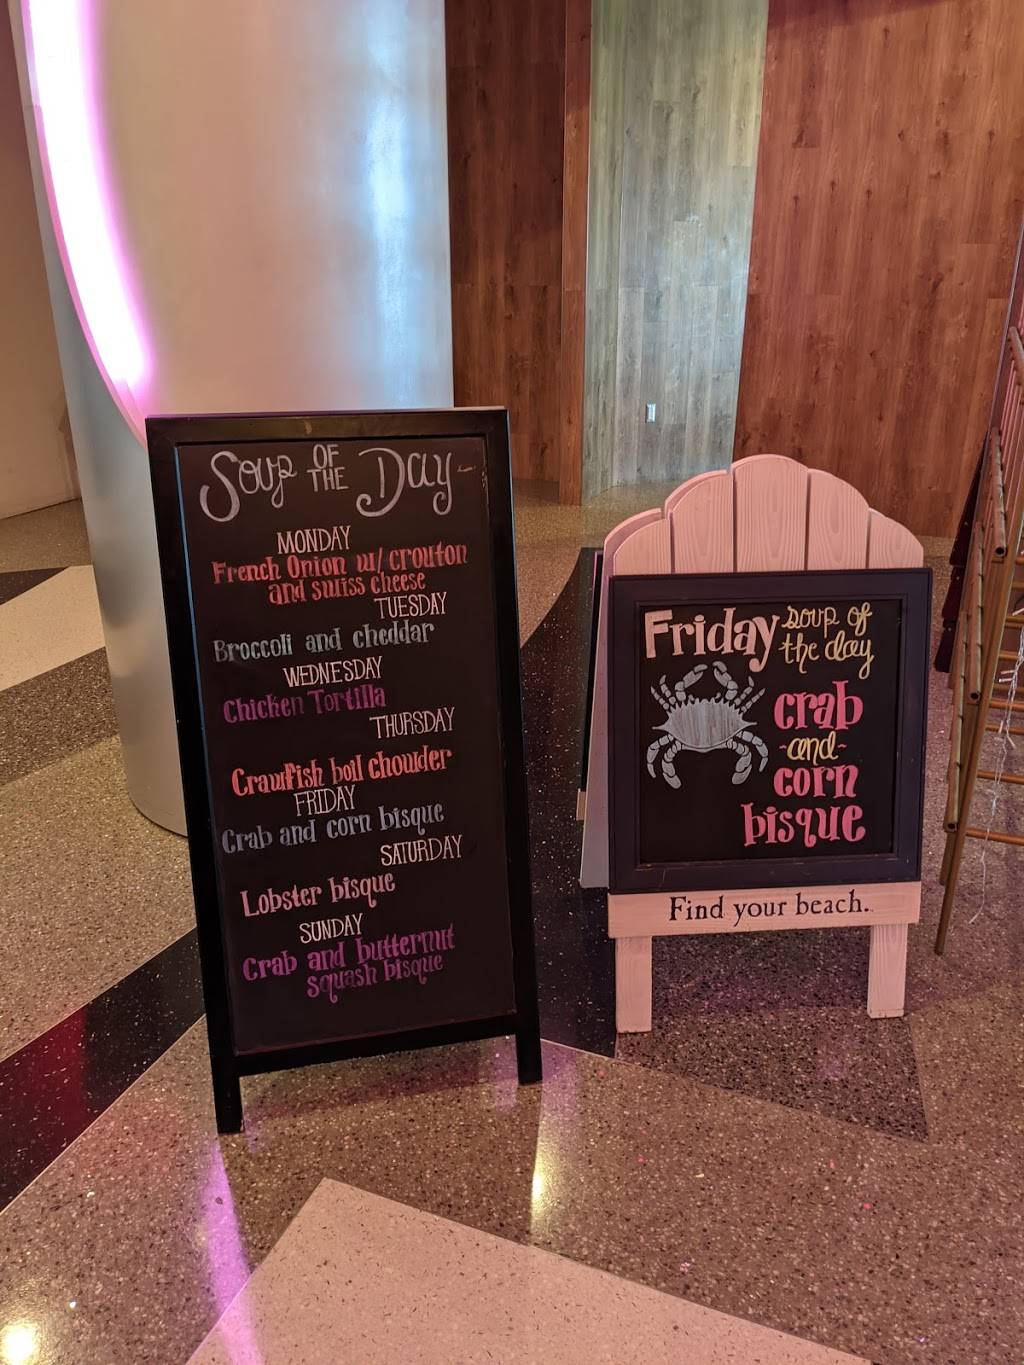 Soup OF THE Day
MONDAY
French Onion w/ crouton
and swiss cheese
TUESDAY
Broccoli and cheddar
WEDNESDAY
Chicken Tortilla
THURSDAY
Crawfish boil chowder
FRIDAY
Crab and corn bisque
SATURDAY
Lobster bisque
SUNDAY
Crab and butternut
squash bisque
Friday soup of
the day
crab
-and-
corn
bisque
Find your beach.